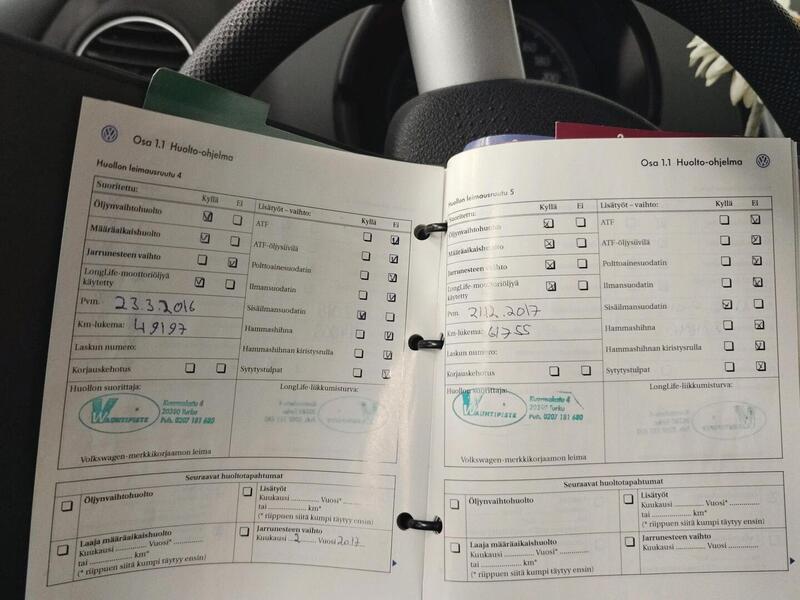 Osa 1.1 Huolto-ohjelma
Huollon leimausruutu 4
Suoritettu: Kyllä Ei
Öljynvaihtohuolto
Määräaikaishuolto
Jarrunesteen vaihto
LongLife-moottoriöljyä
käytetty
Pvm. 23.3.2016
Km-lukema: 49197
Laskun numero:
Korjauskehotus
Lisätyöt – vaihto: Kyllä Ei
ATF
ATF-öljysiivilä
Polttoainesuodatin
Ilmansuodatin
Sisäilmansuodatin
Hammashihna
Hammashihnan kiristysrulla
Sytytystulpat
Huollon suorittaja:
WAUHTIPISTE
Kuormakatu 4
20380 Turku
Puh. 0207 181 680
Volkswagen-merkkikorjaamon leima
LongLife-liikkumisturva:
Seuraavat huoltotapahtumat
Öljynvaihtohuolto
Lisätyöt
Kuukausi ............ Vuosi*............
tai .................. km*
(* riippuen siitä kumpi täytyy ensin)
Laaja määräaikaishuolto
Kuukausi ............ Vuosi*............
tai .................. km*
(* riippuen siitä kumpi täytyy ensin)
Jarrunesteen vaihto
Kuukausi ..2...... Vuosi 2017
Osa 1.1 Huolto-ohjelma
Huollon leimausruutu 5
Suoritettu: Kyllä Ei
Öljynvaihtohuolto
Määräaikaishuolto
Jarrunesteen vaihto
LongLife-moottoriöljyä
käytetty
Pvm. 21.12.2017
Km-lukema: 61755
Laskun numero:
Korjauskehotus
Lisätyöt – vaihto: Kyllä Ei
ATF
ATF-öljysiivilä
Polttoainesuodatin
Ilmansuodatin
Sisäilmansuodatin
Hammashihna
Hammashihnan kiristysrulla
Sytytystulpat
Huollon suorittaja:
WAUHTIPISTE
Kuormakatu 4
20380 Turku
Puh. 0207 181 680
Volkswagen-merkkikorjaamon leima
LongLife-liikkumisturva:
Seuraavat huoltotapahtumat
Öljynvaihtohuolto
Lisätyöt
Kuukausi ............ Vuosi*............
tai .................. km*
(* riippuen siitä kumpi täytyy ensin)
Laaja määräaikaishuolto
Kuukausi ............ Vuosi*............
tai .................. km*
(* riippuen siitä kumpi täytyy ensin)
Jarrunesteen vaihto
Kuukausi ............ Vuosi............